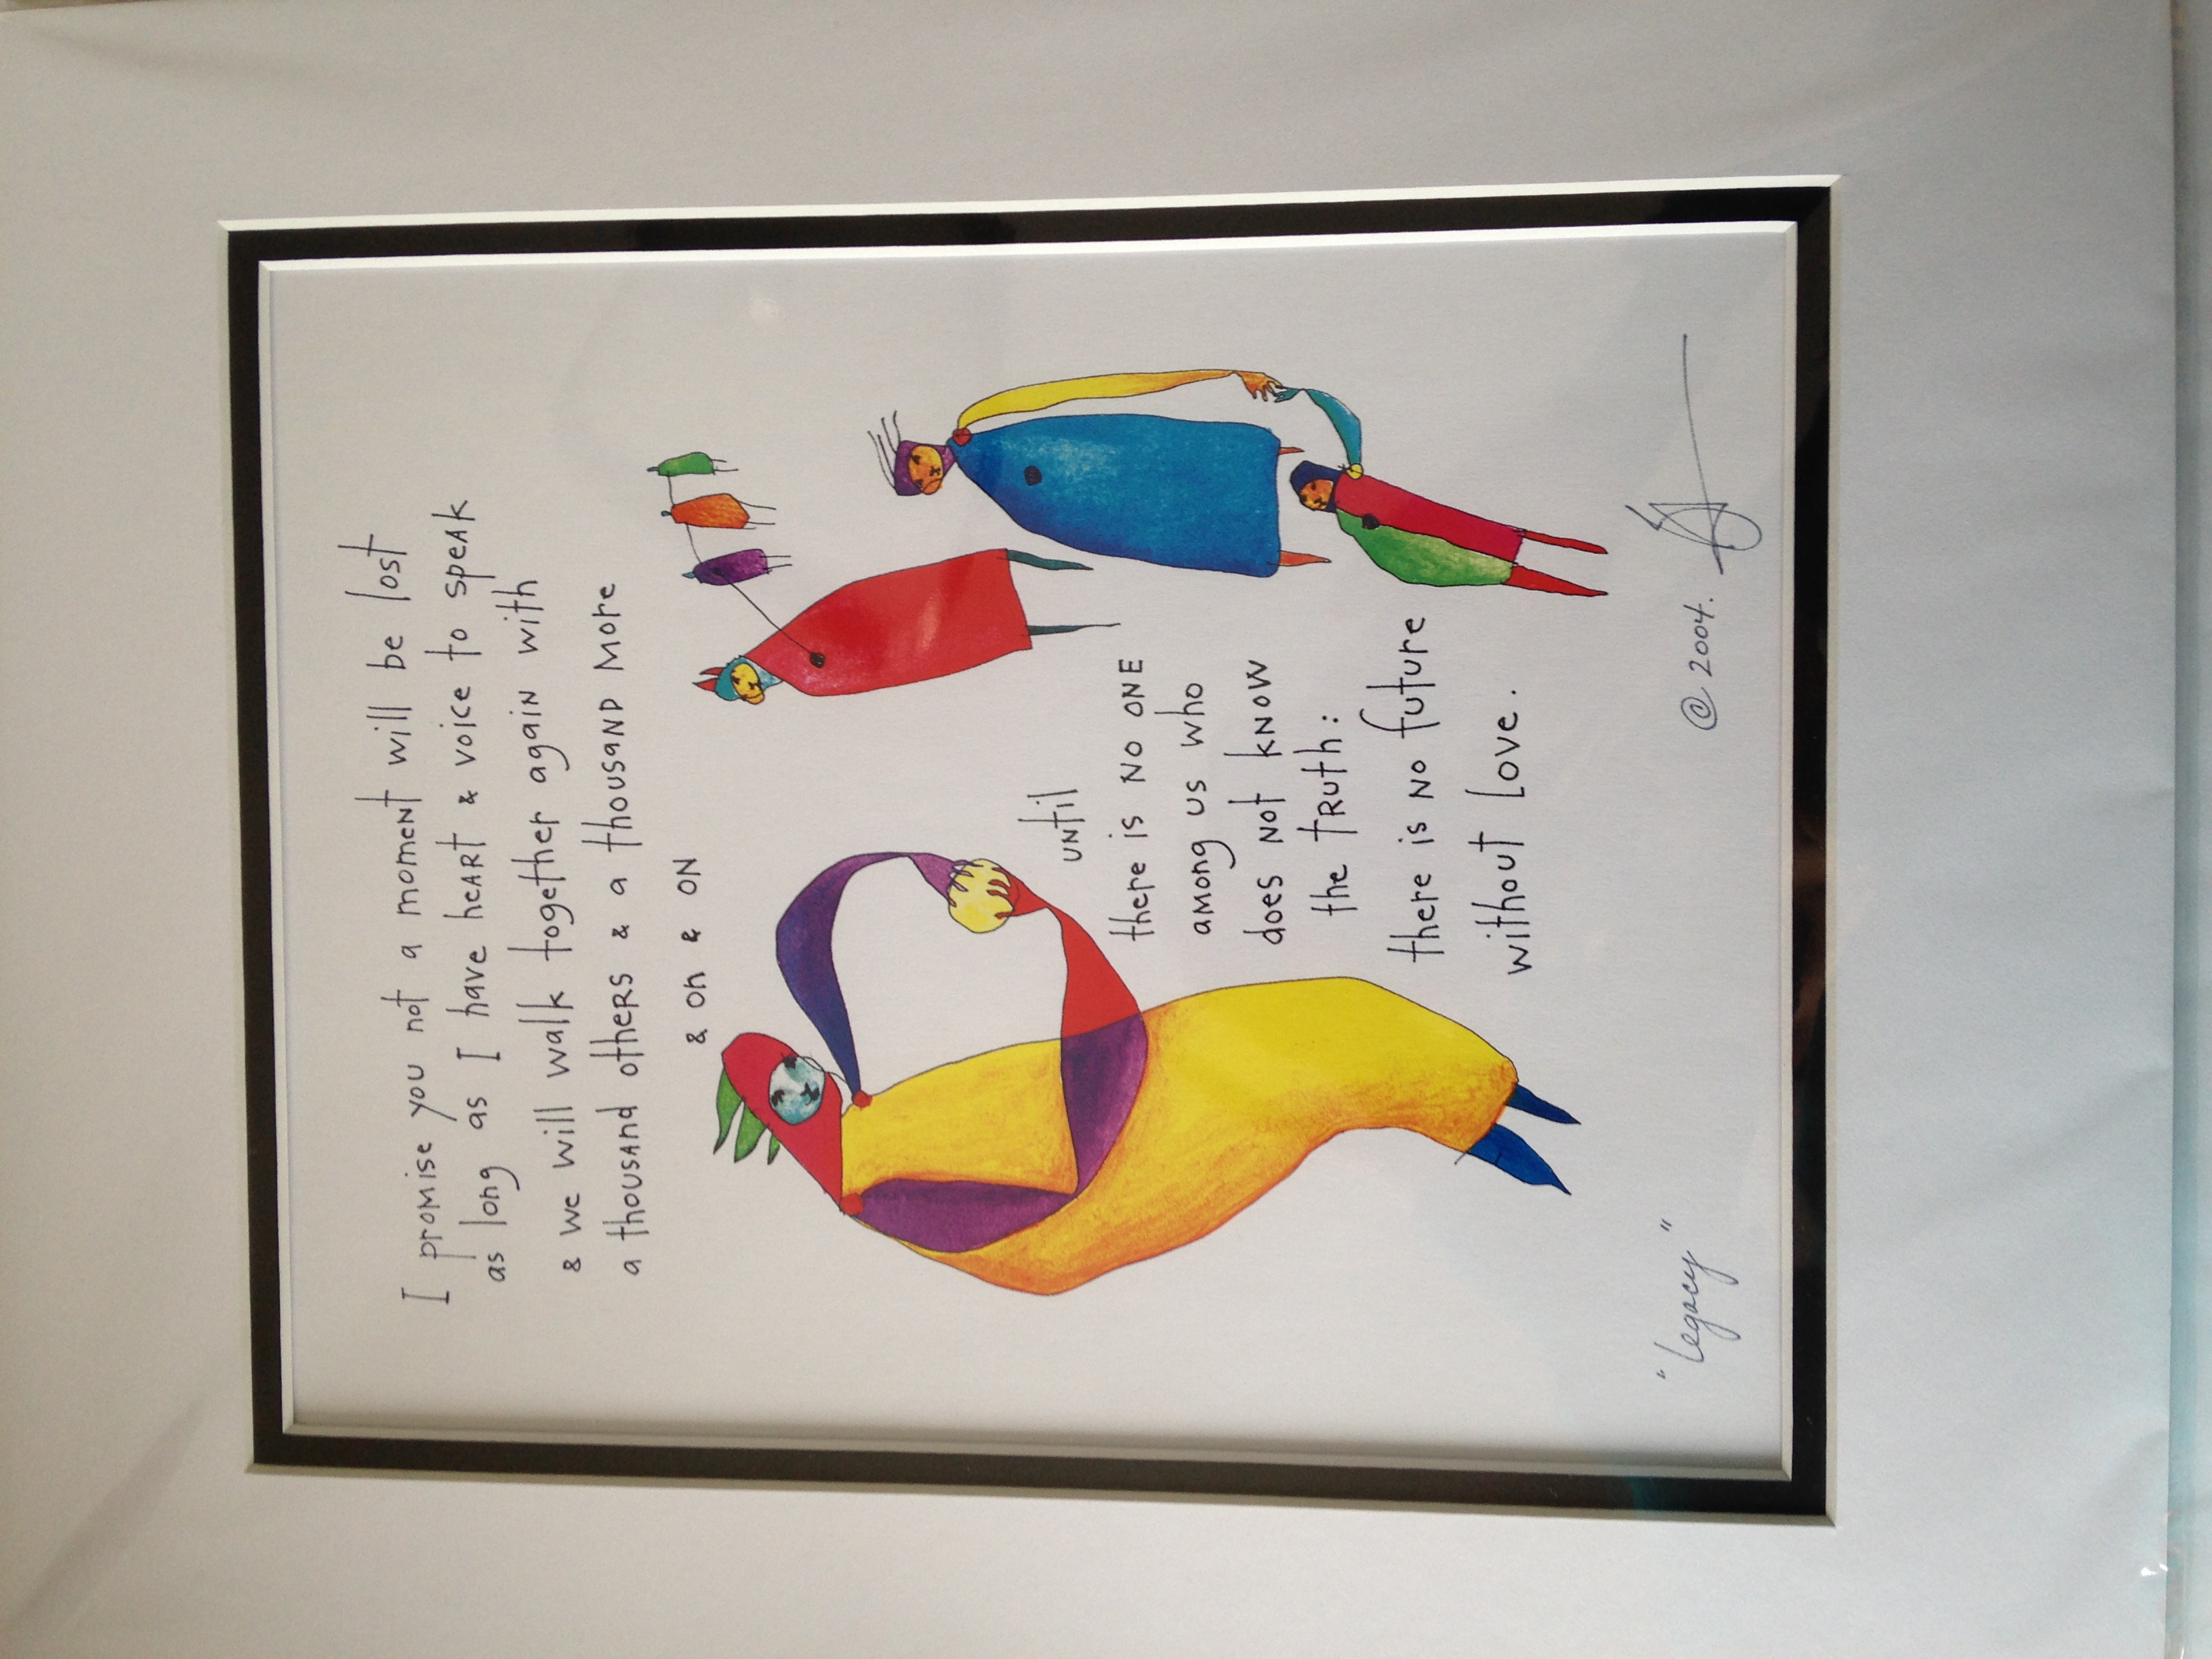 I promise you not a moment will be lost
as long as I have heART & voice to speak
& we will walk together again with
a thousand others & a thousand more
& on & on
until
there is no one
among us who
does not know
the truth:
there is no future
without love.
"Legacy" @ 2004.